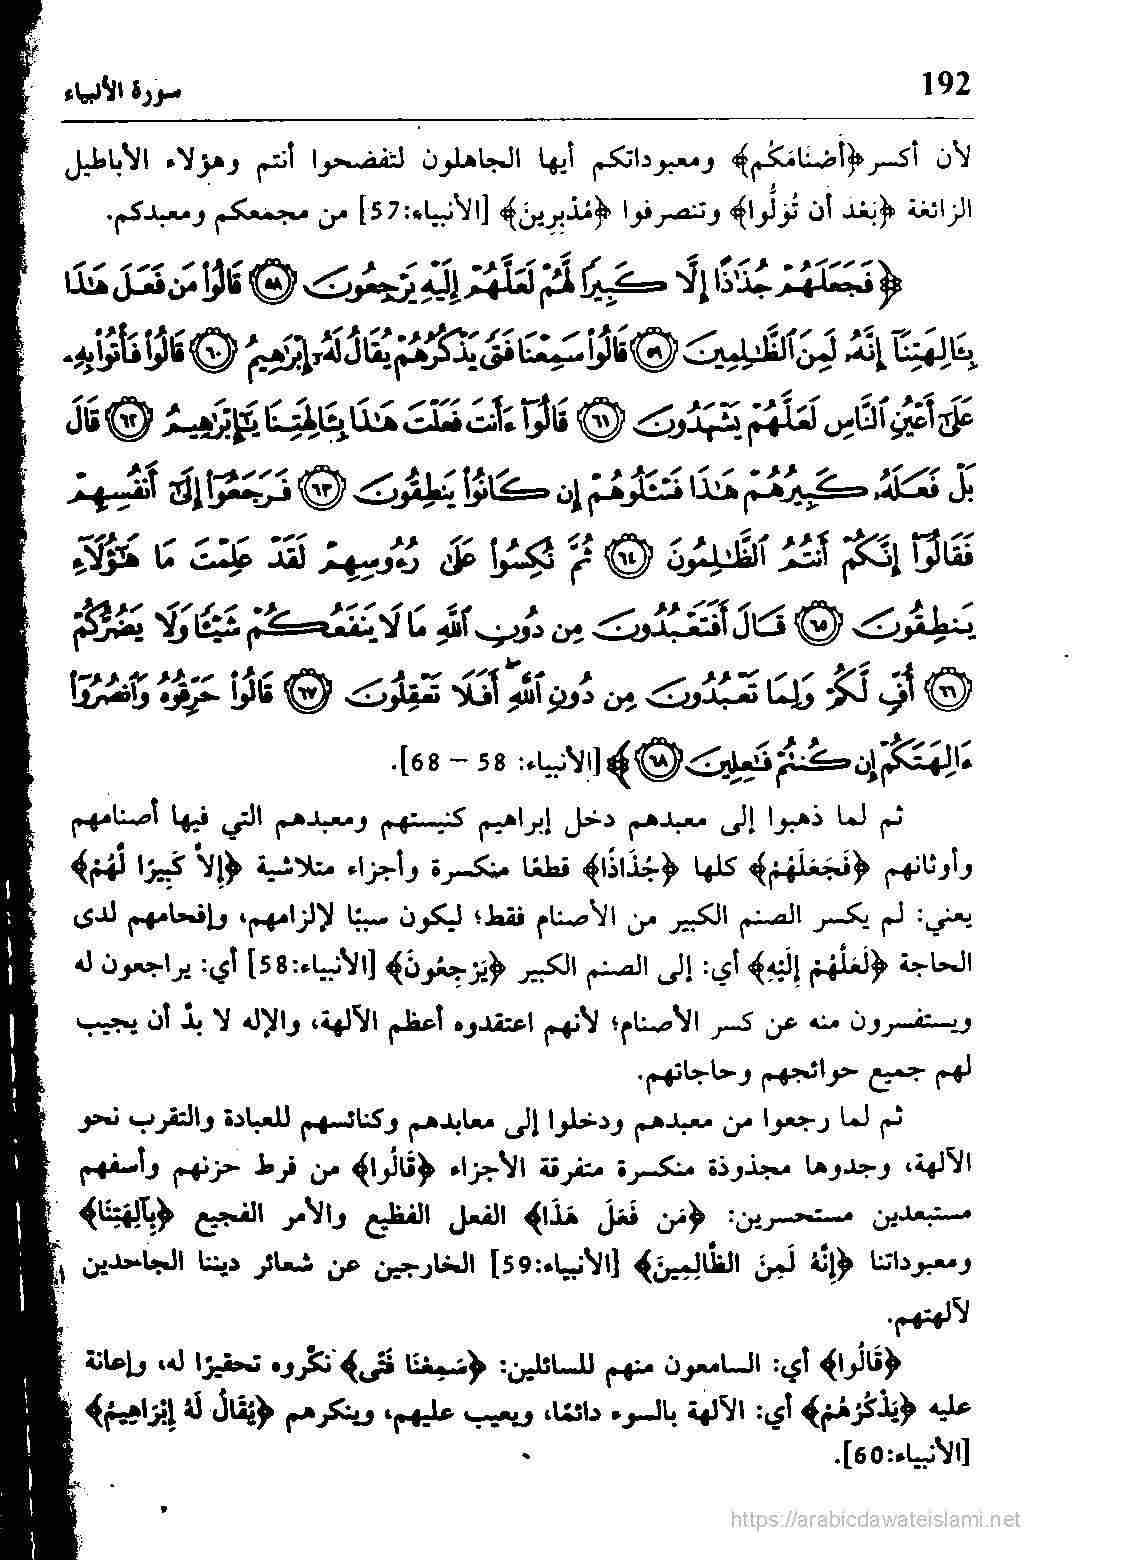 192
سورة الأنبياء
لأن أكسر ﴿أَصْنَامَكُم﴾ ومعبوداتكم أيها الجاهلون لتفضحوا أنتم وهؤلاء الأباطيل
الزائغة ﴿بَعْدَ أَن تُوَلُّوا﴾ وتنصرفوا ﴿مُدْبِرِينَ﴾ [الأنبياء:57] من مجمعكم ومعبدكم.
﴿فَجَعَلَهُمْ جُذَٰذًا إِلَّا كَبِيرًا لَّهُمْ لَعَلَّهُمْ إِلَيْهِ يَرْجِعُونَ ٥٨ قَالُوا۟ مَن فَعَلَ هَٰذَا
بِـَٔالِهَتِنَآ إِنَّهُۥ لَمِنَ ٱلظَّٰلِمِينَ ٥٩ قَالُوا۟ سَمِعْنَا فَتًى يَذْكُرُهُمْ يُقَالُ لَهُۥٓ إِبْرَٰهِيمُ ٦٠ قَالُوا۟ فَأْتُوا۟ بِهِۦ
عَلَىٰٓ أَعْيُنِ ٱلنَّاسِ لَعَلَّهُمْ يَشْهَدُونَ ٦١ قَالُوٓا۟ ءَأَنتَ فَعَلْتَ هَٰذَا بِـَٔالِهَتِنَا يَٰٓإِبْرَٰهِيمُ ٦٢ قَالَ
بَلْ فَعَلَهُۥ كَبِيرُهُمْ هَٰذَا فَسْـَٔلُوهُمْ إِن كَانُوا۟ يَنطِقُونَ ٦٣ فَرَجَعُوٓا۟ إِلَىٰٓ أَنفُسِهِمْ
فَقَالُوٓا۟ إِنَّكُمْ أَنتُمُ ٱلظَّٰلِمُونَ ٦٤ ثُمَّ نُكِسُوا۟ عَلَىٰ رُءُوسِهِمْ لَقَدْ عَلِمْتَ مَا هَٰٓؤُلَآءِ
يَنطِقُونَ ٦٥ قَالَ أَفَتَعْبُدُونَ مِن دُونِ ٱللَّهِ مَا لَا يَنفَعُكُمْ شَيْـًٔا وَلَا يَضُرُّكُمْ
٦٦ أُفٍّ لَّكُمْ وَلِمَا تَعْبُدُونَ مِن دُونِ ٱللَّهِ ۖ أَفَلَا تَعْقِلُونَ ٦٧ قَالُوا۟ حَرِّقُوهُ وَٱنصُرُوٓا۟
ءَالِهَتَكُمْ إِن كُنتُمْ فَٰعِلِينَ ٦٨﴾ [الأنبياء: 58 – 68].
ثم لما ذهبوا إلى معبدهم دخل إبراهيم كنيستهم ومعبدهم التي فيها أصنامهم
وأوثانهم ﴿فَجَعَلَهُمْ﴾ كلها ﴿جُذَاذًا﴾ قطعًا منكسرة وأجزاء متلاشية ﴿إِلاَّ كَبِيرًا لَّهُمْ﴾
يعني: لم يكسر الصنم الكبير من الأصنام فقط؛ ليكون سببًا لإلزامهم، وإفحامهم لدى
الحاجة ﴿لَعَلَّهُمْ إِلَيْهِ﴾ أي: إلى الصنم الكبير ﴿يَرْجِعُونَ﴾ [الأنبياء:58] أي: يراجعون له
ويستفسرون منه عن كسر الأصنام؛ لأنهم اعتقدوه أعظم الآلهة، والإله لا بدَّ أن يجيب
لهم جميع حوائجهم وحاجاتهم.
ثم لما رجعوا من معبدهم ودخلوا إلى معابدهم وكنائسهم للعبادة والتقرب نحو
الآلهة، وجدوها مجذوذة منكسرة متفرقة الأجزاء ﴿قَالُوا﴾ من فرط حزنهم وأسفهم
مستبعدين مستحسرين: ﴿مَن فَعَلَ هَذَا﴾ الفعل الفظيع والأمر الفجيع ﴿بِآلِهَتِنَا﴾
ومعبوداتنا ﴿إِنَّهُ لَمِنَ الظَّالِمِينَ﴾ [الأنبياء:59] الخارجين عن شعائر ديننا الجاحدين
لآلهتهم.
﴿قَالُوا﴾ أي: السامعون منهم للسائلين: ﴿سَمِعْنَا فَتًى﴾ نكَّروه تحقيرًا له، وإعانة
عليه ﴿يَذْكُرُهُمْ﴾ أي: الآلهة بالسوء دائمًا، ويعيب عليهم، وينكرهم ﴿يُقَالُ لَهُ إِبْرَاهِيمُ﴾
[الأنبياء:60].
https://arabicdawateislami.net